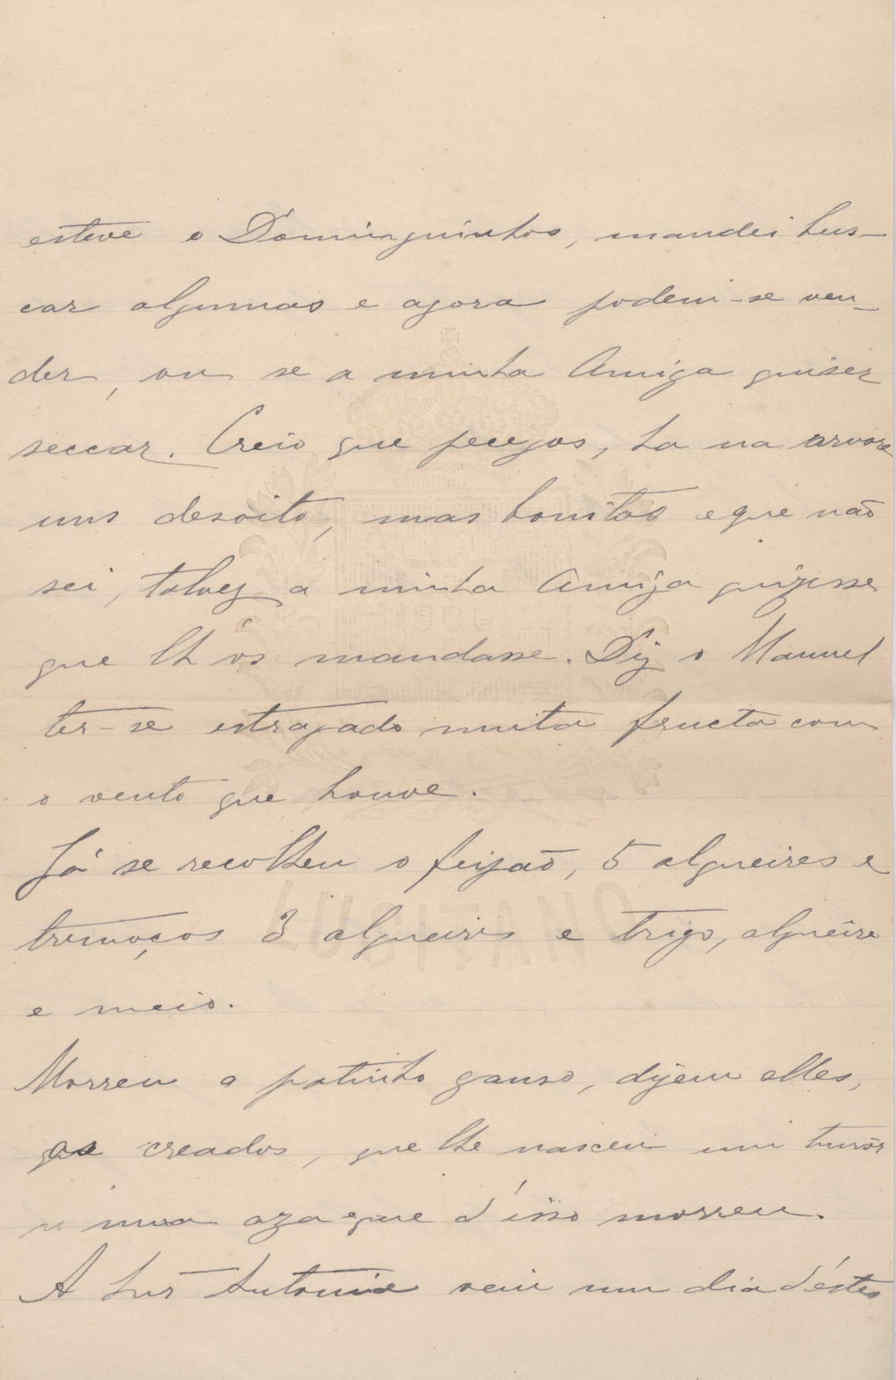 esteve o Dominguinhos, mandei bus-
car algumas e agora podem-se ven-
der, ou se a minha Amiga quiser
seccar. Creio que pecegos, ha na arvore
uns desoito, mas bonitos e que não
sei, talvez a minha Amiga quizesse
que lh'os mandasse. Diz o Manuel
ter-se estragado muita fructa com
o vento que houve.
Já se recolheu o feijão, 5 alqueires e
tremoços 3 alqueires e trigo, alqueire
e meio.
Morreu o patinho ganso, dizem elles,
os creados, que lhe nasceu um tumôr
n'uma aza e que d'isso morreu.
A Snrª Antonia veiu um dia d'éstes